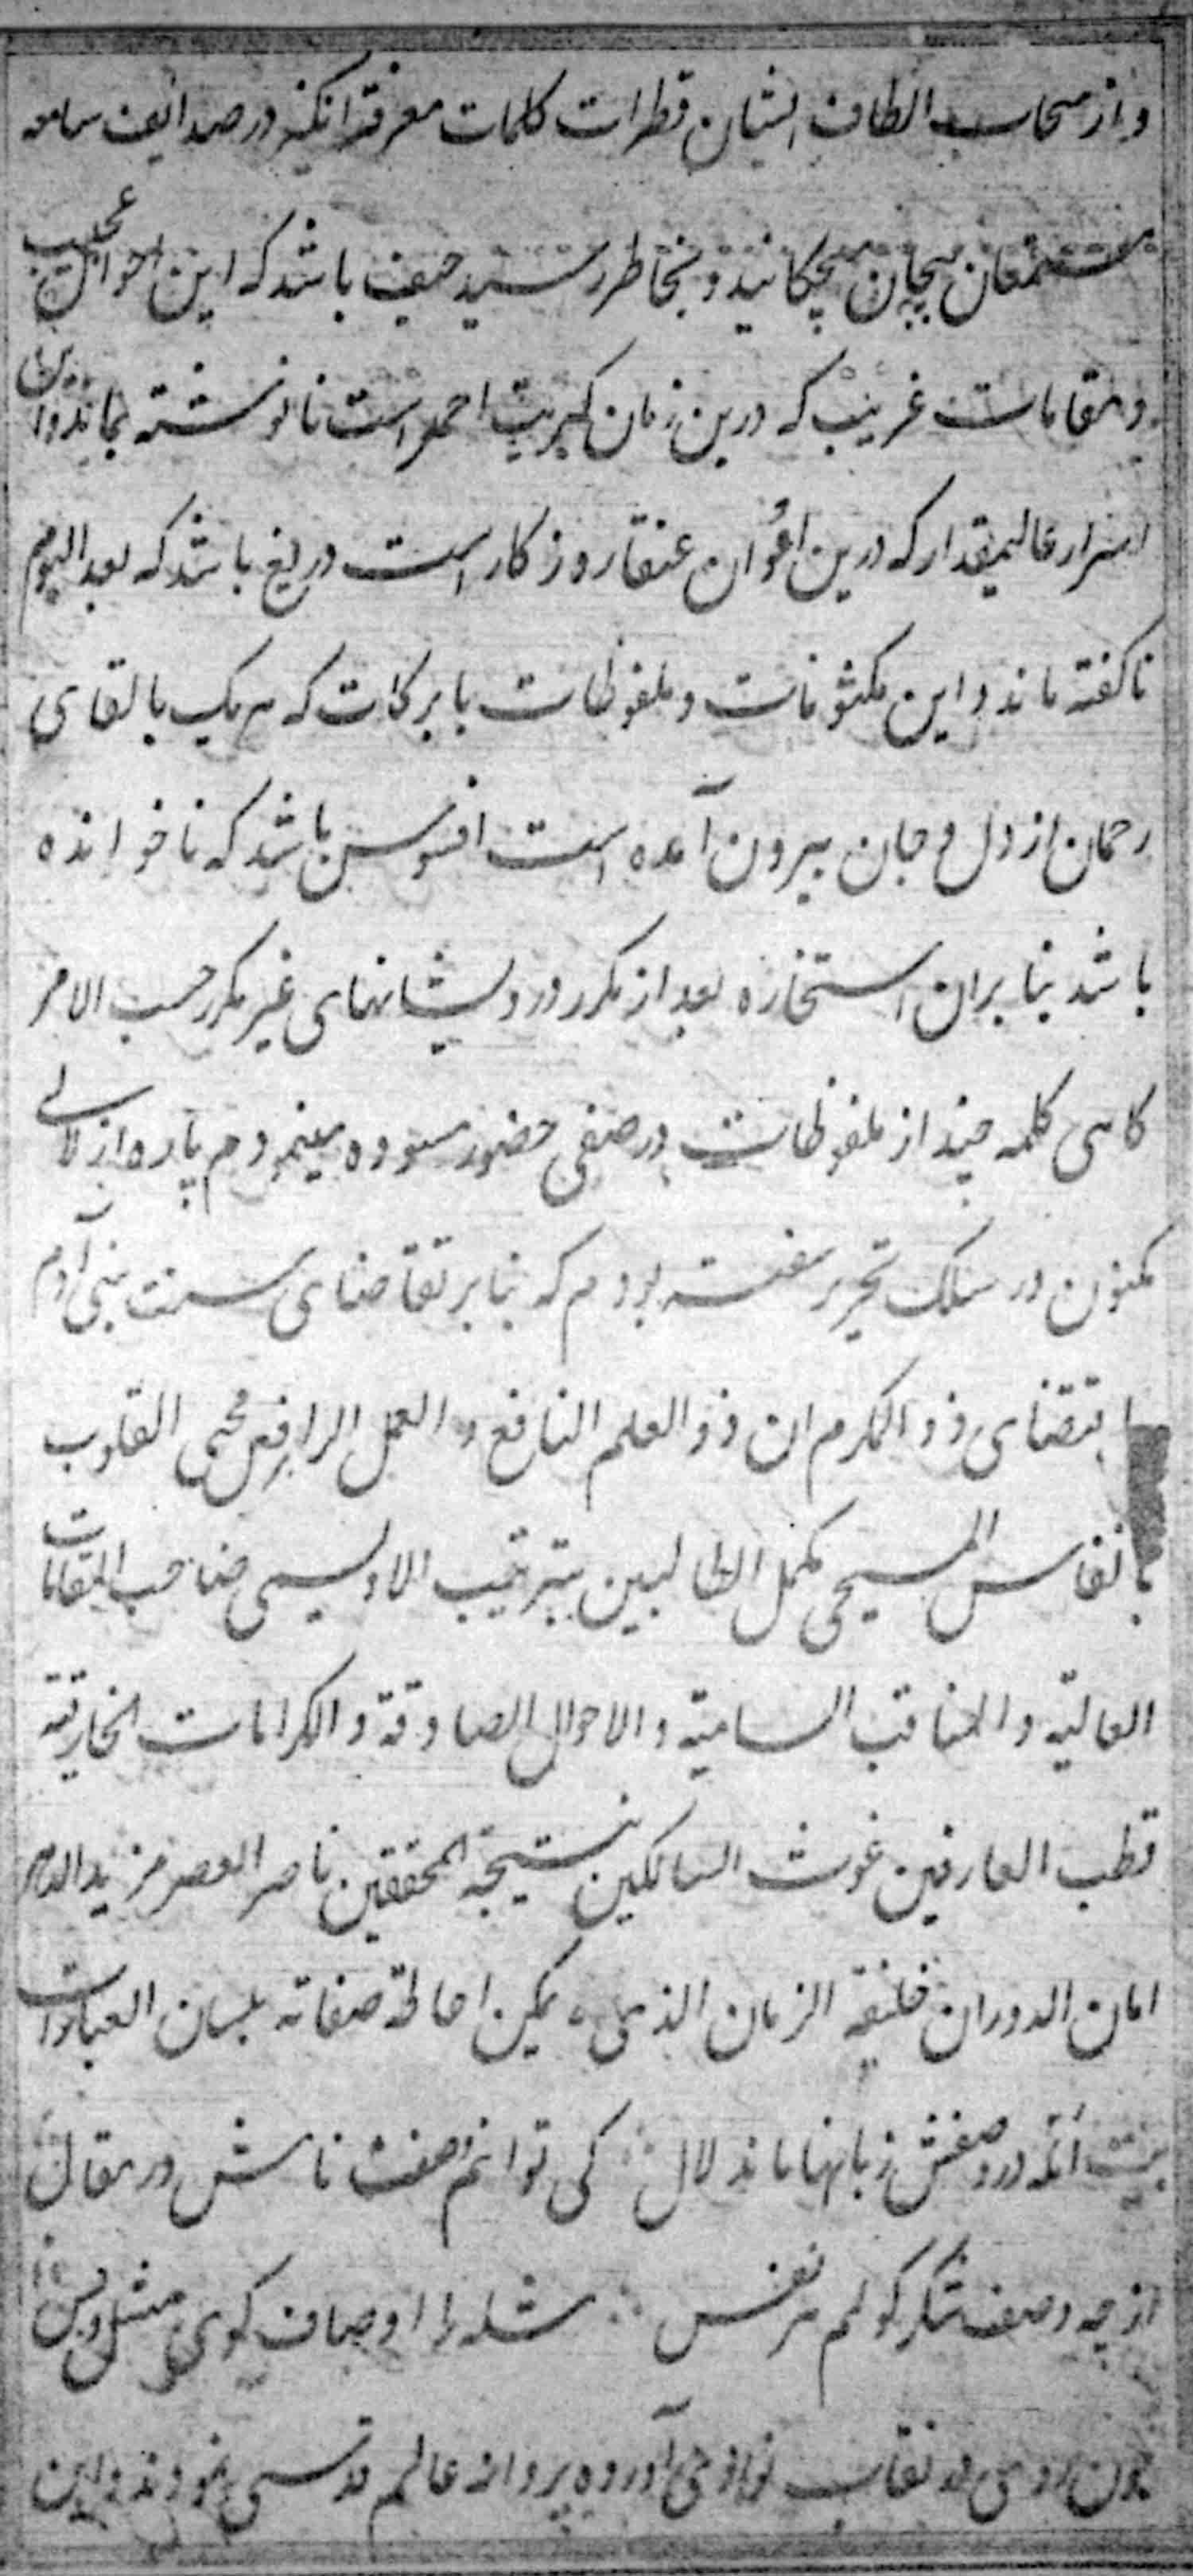 و از سحاب الطاف ایشان قطرات کلمات معرفت انگیز در صدایف سامعه
مستمعان میچکانید و بخاطر رسید حیف باشد که این احوال عجیب
و مقامات غریب که درین زمان کبریت احمر است نانوشته بماند و این
اسرار عالیمقدار که درین اعوان عنقاء روزکار است دریغ باشد که بعد الیوم
ناکفته ماند و این مکنونات و ملفوظات بابرکات که هر یک بالقای
رحمان از دل و جان بیرون آمده است افسوس باشد که ناخوانده
باشد بنابران استخاره بعد از مکرر و رویشانهای غیر مکرر حسب الامر
کاهی کلمه چند از ملفوظات در صفی حضور مسوده مینمودم پاره از لالی
مکنون در سلک تحریر سفته بودم که بنابر تقاضای سنت بنی آدم
بمقتضای ذو المکرم ان ذو العلم النافع و العمل الرافع محی القلوب
بانفاس المسیحی مکمل الطالبین بترتیب الاویسی صاحب المقامات
العالیة و المناقب السامیة و الاحوال الصادقة و الکرامات الخارقة
قطب العارفین غوث السالکین نتیجة المحققین ناصر العصر مزید الدهر
امان الدوران خلیفة الزمان الذی لا یمکن احاطة صفاته بلسان العبارات
بیت آنکه در وصفش زبانها ماند لال کی توانم وصف نامش در مقال
از چه وصف شکر کویم هر نفس مثله را اوصاف کوی مثل و بس
چون روی در نقاب آورده پروانه عالم قدسی نمودند و این